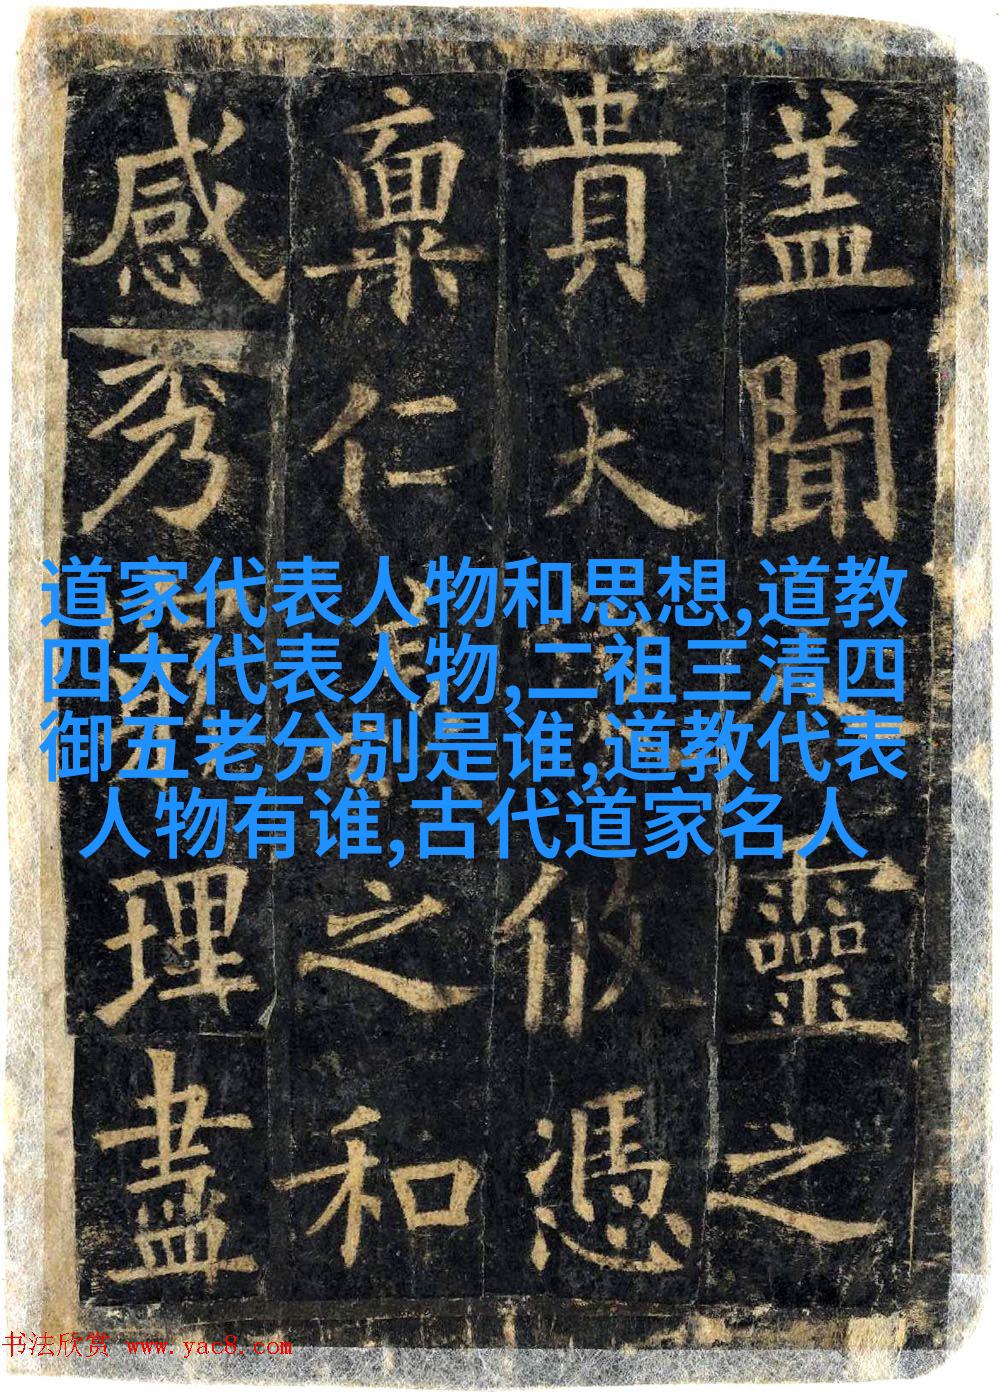 盖聞靈之
貴天攸憑
稟仁之和
感秀理盡
道家代表人物和思想,道教
四大代表人物,二祖三清四
御五老分别是谁,道教代表
人物有谁,古代道家名人
书法欣赏 www.yac8.com